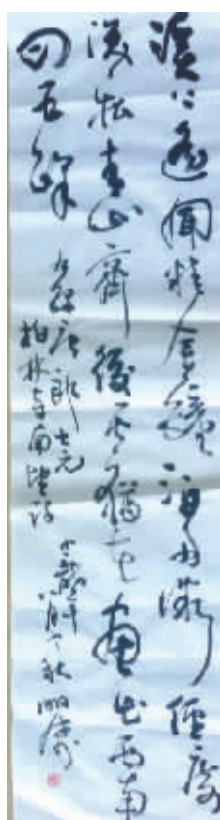 溪上遥聞精舍鐘泊舟微徑度
深松青山霽後雲猶在畫出西南
四五峰
唐郎士元
柏林寺南望詩
秋